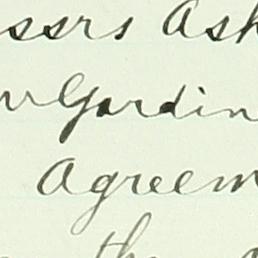 ssrs Ash
Gardin
Agreem
the